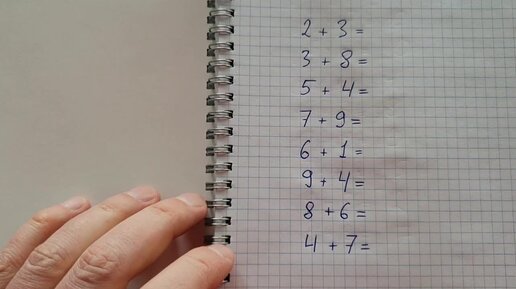 2 + 3 =
3 + 8 =
5 + 4 =
7 + 9 =
6 + 1 =
9 + 4 =
8 + 6 =
4 + 7 =